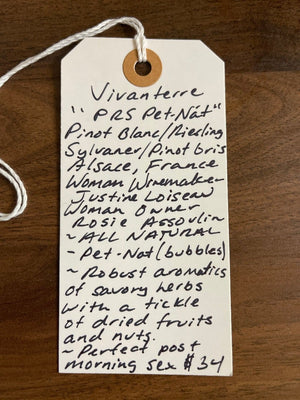 Vivanterre
"PRS Pet-Nat"
Pinot Blanc/Riesling
Sylvaner/Pinot Gris
Alsace, France
Woman Winemaker
Justine Loiseau
Woman Owner
Rosie Assoulin
~ALL NATURAL
~Pet-Nat (bubbles)
~Robust aromatics
of savory herbs
with a tickle
of dried fruits
and nuts.
~Perfect post
morning sex $34